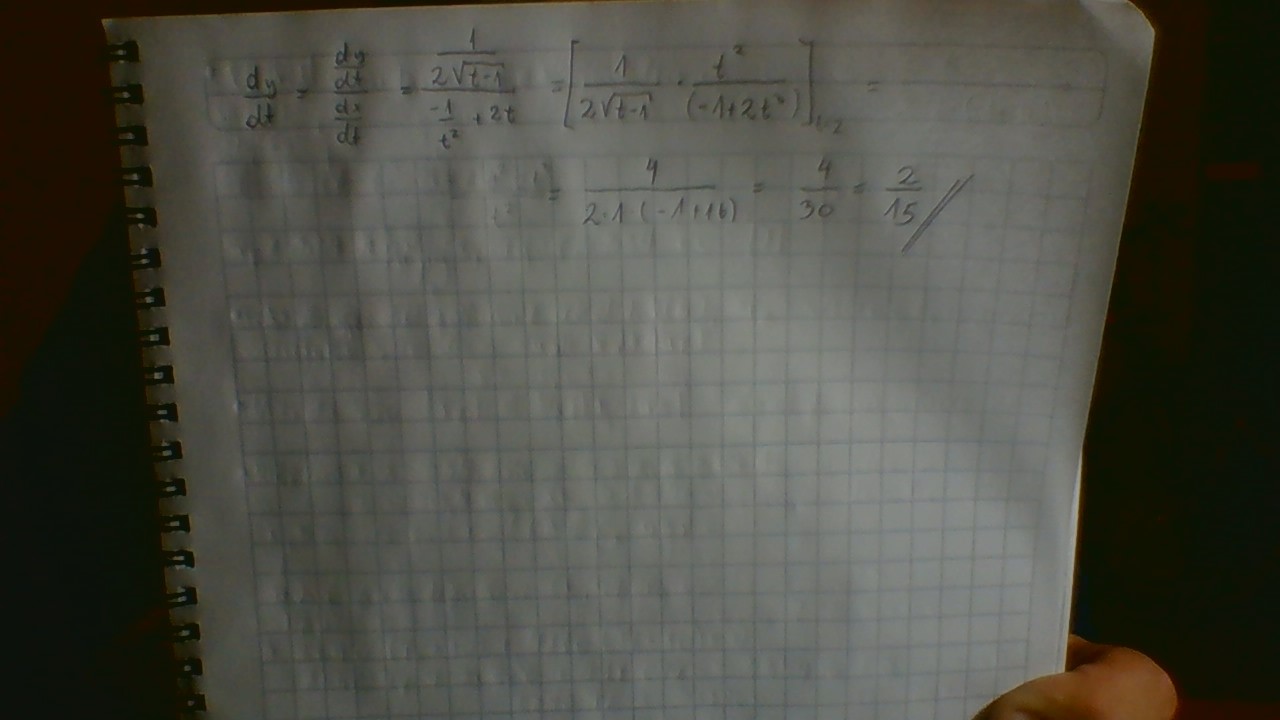 dy/dt = (dy/dt)/(dx/dt) = (1/(2√(t-1)))/(-1/t² + 2t) = [1/(2√(t-1)) · t²/(-1+2t³)]t=2 =
= 4/(2·1(-1+16)) = 4/30 = 2/15 //